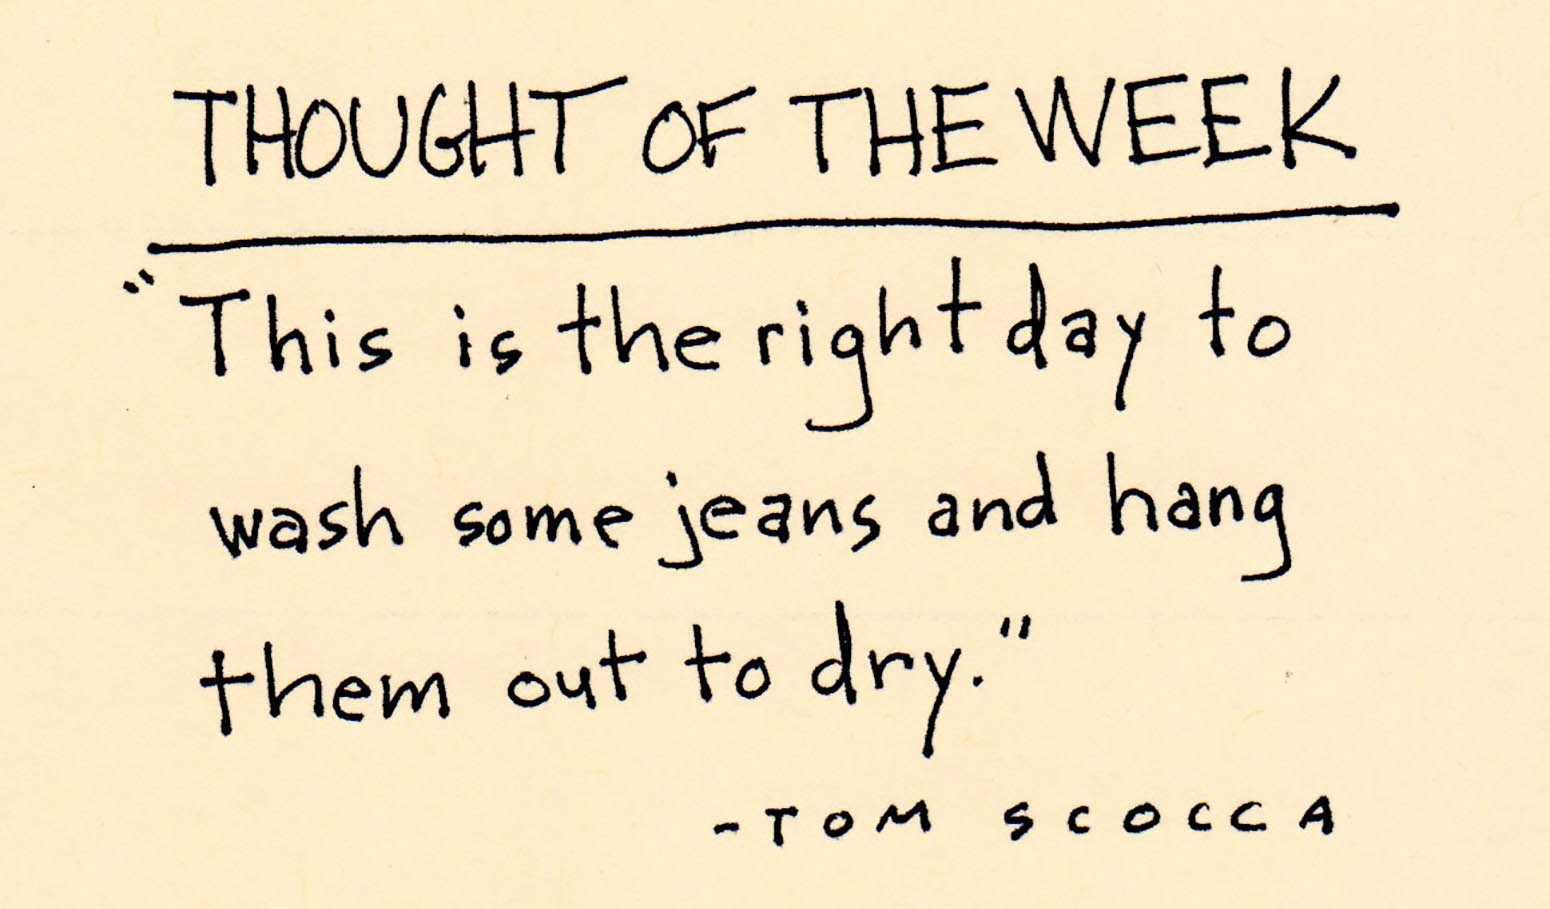 THOUGHT OF THE WEEK
"This is the right day to
wash some jeans and hang
them out to dry."
-TOM SCOCCA